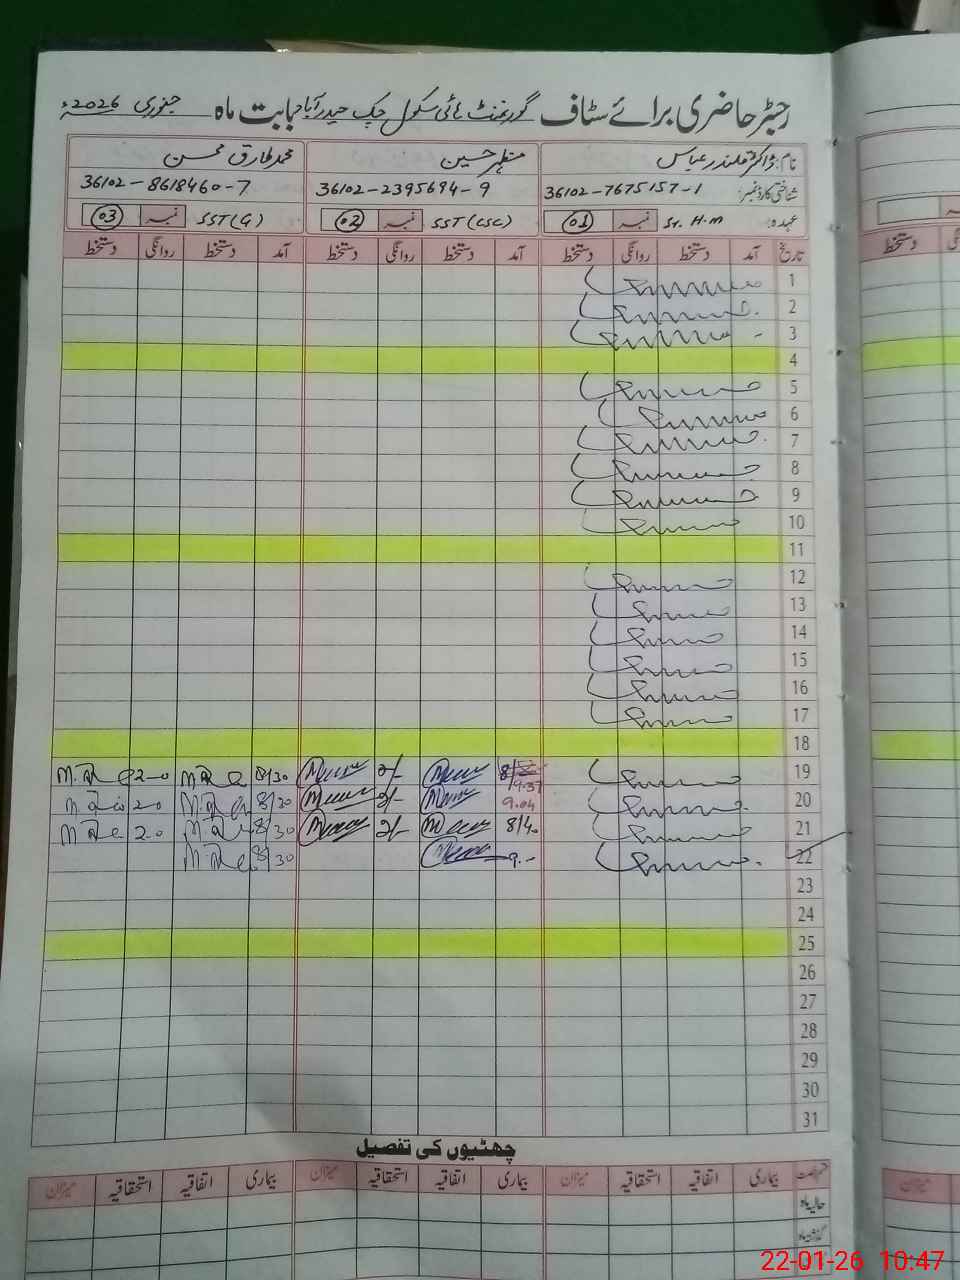 رجسٹر حاضری برائے سٹاف گورنمنٹ ہائی سکول چک حیدرآباد بابت ماہ جنوری 2026ء
نام: ڈاکٹر قلندر عباس مظہر حسین محمد طارق محسن
شناختی کارڈ نمبر: 36102-7675157-1 36102-2395694-9 36102-8618460-7
عہدہ: Sr. H.M نمبر 01 SST (CSC) نمبر 02 SST (G) نمبر 03
تاریخ آمد دستخط روانگی دستخط آمد دستخط روانگی دستخط آمد دستخط روانگی دستخط
دستخط
1
2
3
4
5
6
7
8
9
10
11
12
13
14
15
16
17
18
19 9:37 2/- 8/30 2-0
20 9.04 2/- 8/30 2-0
21 8/40 2/- 8/30 2-0
22 9.- 8/30
23
24
25
26
27
28
29
30
31
چھٹیوں کی تفصیل
بیماری اتفاقیہ استحقاقیہ میزان بیماری اتفاقیہ استحقاقیہ میزان بیماری اتفاقیہ استحقاقیہ میزان
میزان
حالیہ ماہ
گذشتہ ماہ
22-01-26 10:47